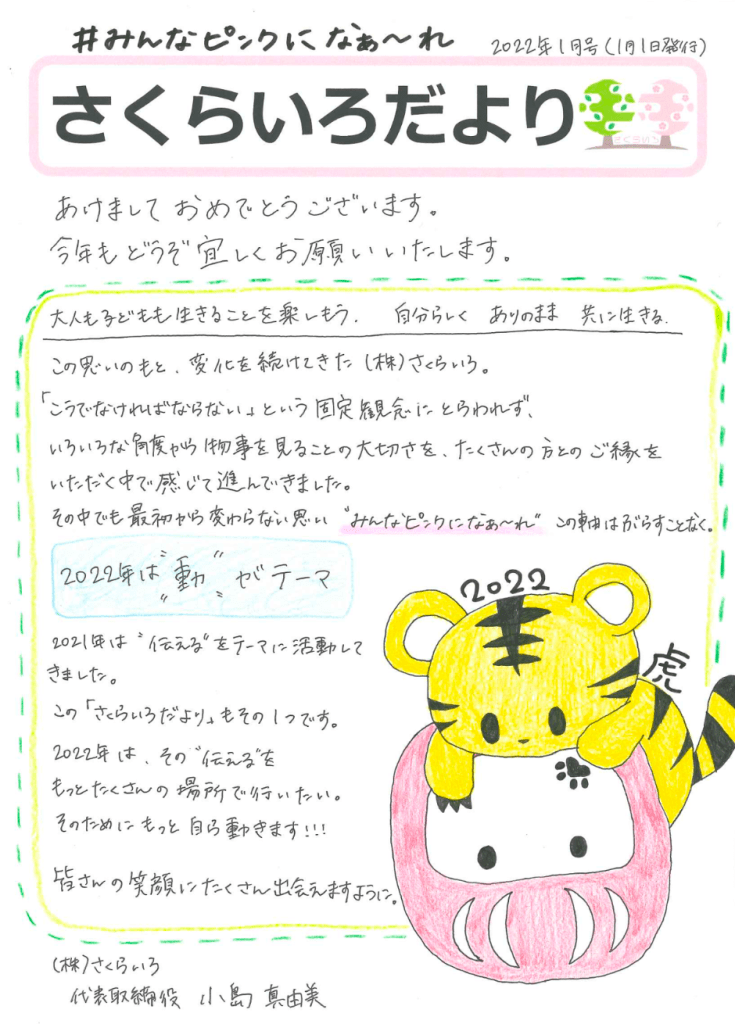 #みんなピンクになぁ〜れ
2022年1月号(1月1日発行)
さくらいろだより
さくらいろ
あけまして おめでとうございます。
今年も どうぞ 宜しく お願い いたします。
大人も子どもも生きることを楽しもう. 自分らしく ありのまま 共に生きる.
この思いのもと、変化を続けてきた (株)さくらいろ。
「こうでなければならない」という 固定観念に とらわれず、
いろいろな角度から物事を見ることの大切さを、たくさんの方とのご縁を
いただく中で感じて進んできました。
その中でも最初から変わらない思い “みんなピンクになぁ〜れ” この軸はぶらすことなく。
2022年は “動” が テーマ
2021年は “伝える”をテーマに活動して
きました。
この「さくらいろだより」もその1つです。
2022年は、その“伝える”を
もっとたくさんの場所で行いたい。
そのために もっと 自ら動きます!!!
皆さんの笑顔にたくさん出会えますように。
2022
虎
(株)さくらいろ
代表取締役 小島 真由美